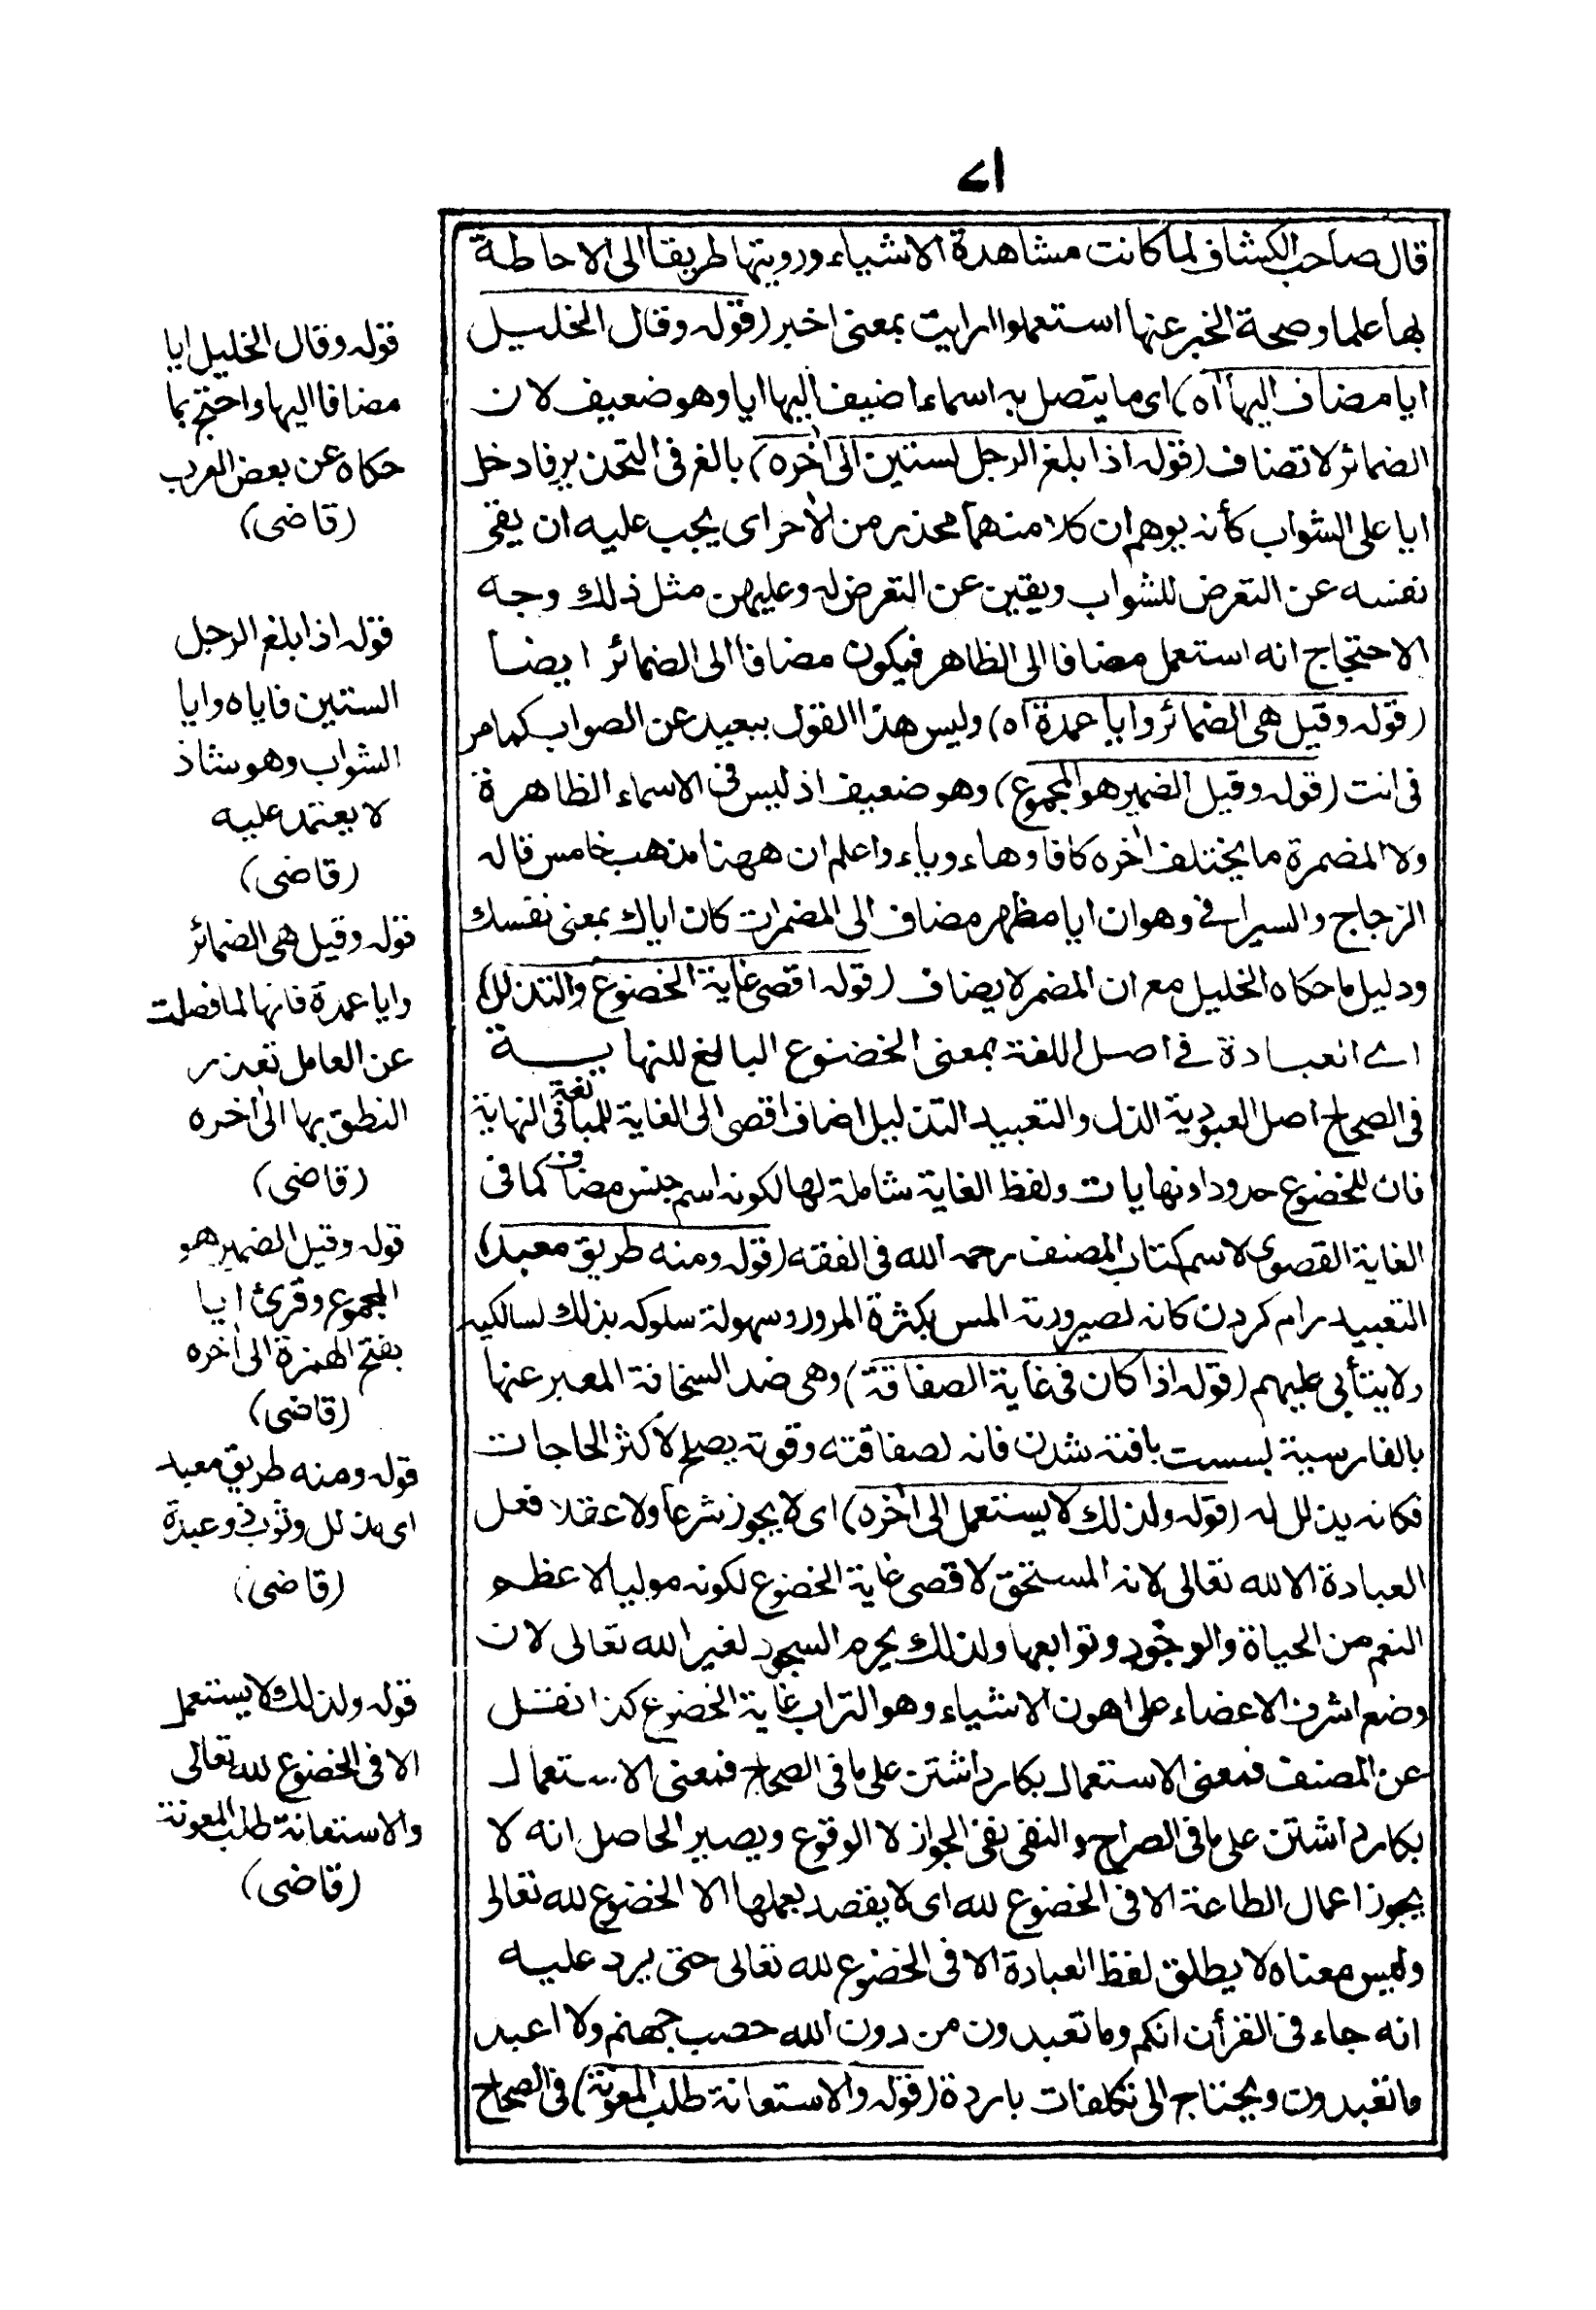 ٧١
قال صاحب الكشاف لما كانت مشاهدة الاشياء ورويتها طريقا الى الاحاطة
بها علما وصحة الخبر عنها استعملوا ارايت بمعنى اخبر (قوله وقال الخليل
ايا مضاف اليها اه) اى ما يتصل به اسماء اضيف اليها ايا وهو ضعيف لان
الضمائر لا تضاف (قوله اذا بلغ الرجل لستين الى اخره) بالغ فى التحذير فادخل
ايا على الشواب كأنه يوهم ان كلا منهما محذر من الآخر اى يجب عليه ان يقى
نفسه عن التعرض للشواب ويقين عن التعرض له وعليهن مثل ذلك وجه
الاحتجاج انه استعمل مضافا الى الظاهر فيكون مضافا الى الضمائر ايضا
(قوله وقيل هى الضمائر وايا عمدة اه) وليس هذا القول ببعيد عن الصواب كما مر
فى انت (قوله وقيل الضمير هو المجموع) وهو ضعيف اذ ليس فى الاسماء الظاهرة
ولا المضمرة ما يختلف اخره كافا وهاء وياء واعلم ان ههنا مذهب خامس قاله
الزجاج والسيرافے وهو ان ايا مظهر مضاف الى المضمرات كان اياك بمعنى نفسك
ودليل ما حكاه الخليل مع ان المضمر لا يضاف (قوله اقصى غاية الخضوع والتذلل)
اے العبادة فے اصل اللغة بمعنى الخضوع البالغ للنهاية
فى الصحاح اصل العبودية الذل والتعبيد التذليل اضاف اقصى الى الغاية للمبالغة فى النهاية
فان للخضوع حدودا ونهايات ولفظ الغاية شاملة لها لكونه اسم جنس مضاف كما فى
الغاية القصوى لاسم كتاب المصنف رحمه الله فى الفقه (قوله ومنه طريق معبد)
التعبيد رام كردن كانه لصيرورته المس بكثرة المرور وسهولة سلوكه بذلك لسالكيه
ولا يتأبى عليهم (قوله اذا كان فى غاية الصفاقة) وهى ضد السخافة المعبر عنها
بالفارسية بسست بافته شدن فانه لصفاقته وقوته يصلح لاكثر الحاجات
فكانه يذلل له (قوله ولذلك لا يستعمل الى اخره) اى لا يجوز شرعا ولا عقلا فعل
العبادة الا لله تعالى لانه المستحق لاقصى غاية الخضوع لكونه موليا لاعظم
النعم من الحياة والوجود وتوابعها ولذلك يحرم السجود لغير الله تعالى لان
وضع اشرف الاعضاء على اهون الاشياء وهو التراب غاية الخضوع كذا نقل
عن المصنف فمعنى الاستعمال بكار داشتن على ما فى الصحاح فمعنى الاستعمال
بكار داشتن على ما فى الصراح والنفى نفى الجواز لا الوقوع ويصير الحاصل انه لا
يجوز اعمال الطاعة الا فى الخضوع لله اى لا يقصد بعملها الا الخضوع لله تعالى
وليس معناه لا يطلق لفظ العبادة الا فى الخضوع لله تعالى حتى يرد عليه
انه جاء فى القرأن انكم وما تعبدون من دون الله حصب جهنم ولا اعبد
ما تعبدون ويحتاج الى تكلفات باردة (قوله والاستعانة طلب المعونة) فى الصحاح
قوله وقال الخليل ايا
مضافا اليها واحتج بما
حكاه عن بعض العرب
(قاضى)
قوله اذا بلغ الرجل
الستين فاياه وايا
الشواب وهو شاذ
لا يعتمد عليه
(قاضى)
قوله وقيل هى الضمائر
وايا عمدة فانها لما فصلت
عن العامل تعذر
النطق بها الى اخره
(قاضى)
قوله وقيل الضمير هو
المجموع وقرئ ايا
بفتح الهمزة الى اخره
(قاضى)
قوله ومنه طريق معبد
اى مذلل وثوب ذو عبدة
(قاضى)
قوله ولذلك لا يستعمل
الا فى الخضوع لله تعالى
والاستعانة طلب المعونة
(قاضى)